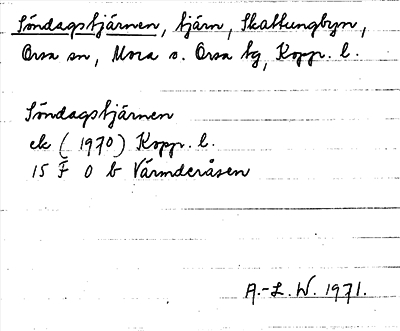 Söndagstjärnen, tjärn, Skattungbyn,
Orsa sn, Mora o. Orsa tg, Kopp. l.
Söndagstjärnen
ek (1970) Kopp. l.
15 F 0 b Värmderåsen
A.-L. W. 1971.